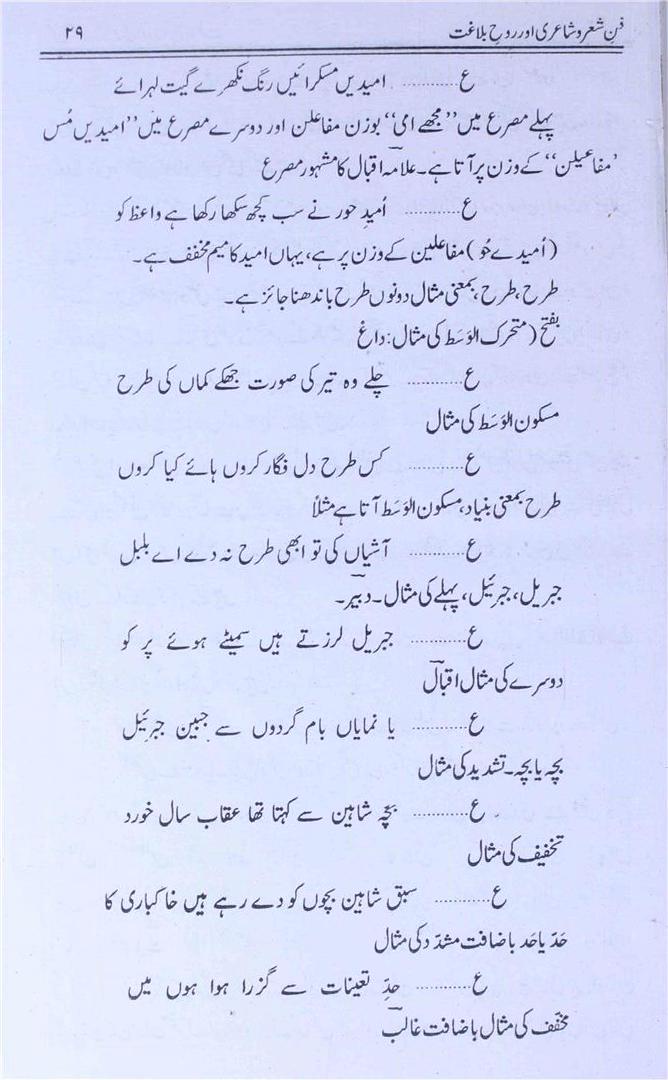 فنِ شعر و شاعری اور روحِ بلاغت ۲۹
ع............ امیدیں مسکرائیں رنگ نکھرے گیت لہرائے
پہلے مصرع میں ”مجھے امی“ بوزن مفاعلن اور دوسرے مصرع میں ”امیدیں مُس
’مفاعیلن“ کے وزن پر آتا ہے۔ علامہؔ اقبال کا مشہور مصرع
ع............ اُمیدِ حور نے سب کچھ سکھا رکھا ہے واعظ کو
(اُمیدے حُو) مفاعلین کے وزن پر ہے، یہاں امید کا میم مخفف ہے۔
طرح، طرح، بمعنی مثال دونوں طرح باندھنا جائز ہے۔
بفتح (متحرک الوَسَط کی مثال : داغؔ
ع............ چلے وہ تیر کی صورت جھکے کماں کی طرح
مسکون الوَسَط کی مثال
ع............ کس طرح دل فگار کروں ہائے کیا کروں
طرح بمعنی بنیاد، مسکون الوَسَط آتا ہے مثلاً
ع............ آشیاں کی تو ابھی طرح نہ دے اے بلبل
جبریل، جبرئیل، پہلے کی مثال۔ دبیرؔ۔
ع............ جبریل لرزتے ہیں سمیٹے ہوئے پر کو
دوسرے کی مثال اقبالؔ
ع............ یا نمایاں بام گردوں سے جبین جبرئیل
بچّہ یا بچہ۔ تشدید کی مثال
ع............ بچّہ شاہین سے کہتا تھا عقاب سال خورد
تخفیف کی مثال
ع............ سبق شاہین بچوں کو دے رہے ہیں خاکبازی کا
حَدّ یا حَد باضافت مشدّد کی مثال
ع............ حدِّ تعینات سے گزرا ہوا ہوں میں
مخفّف کی مثال باضافت غالبؔ